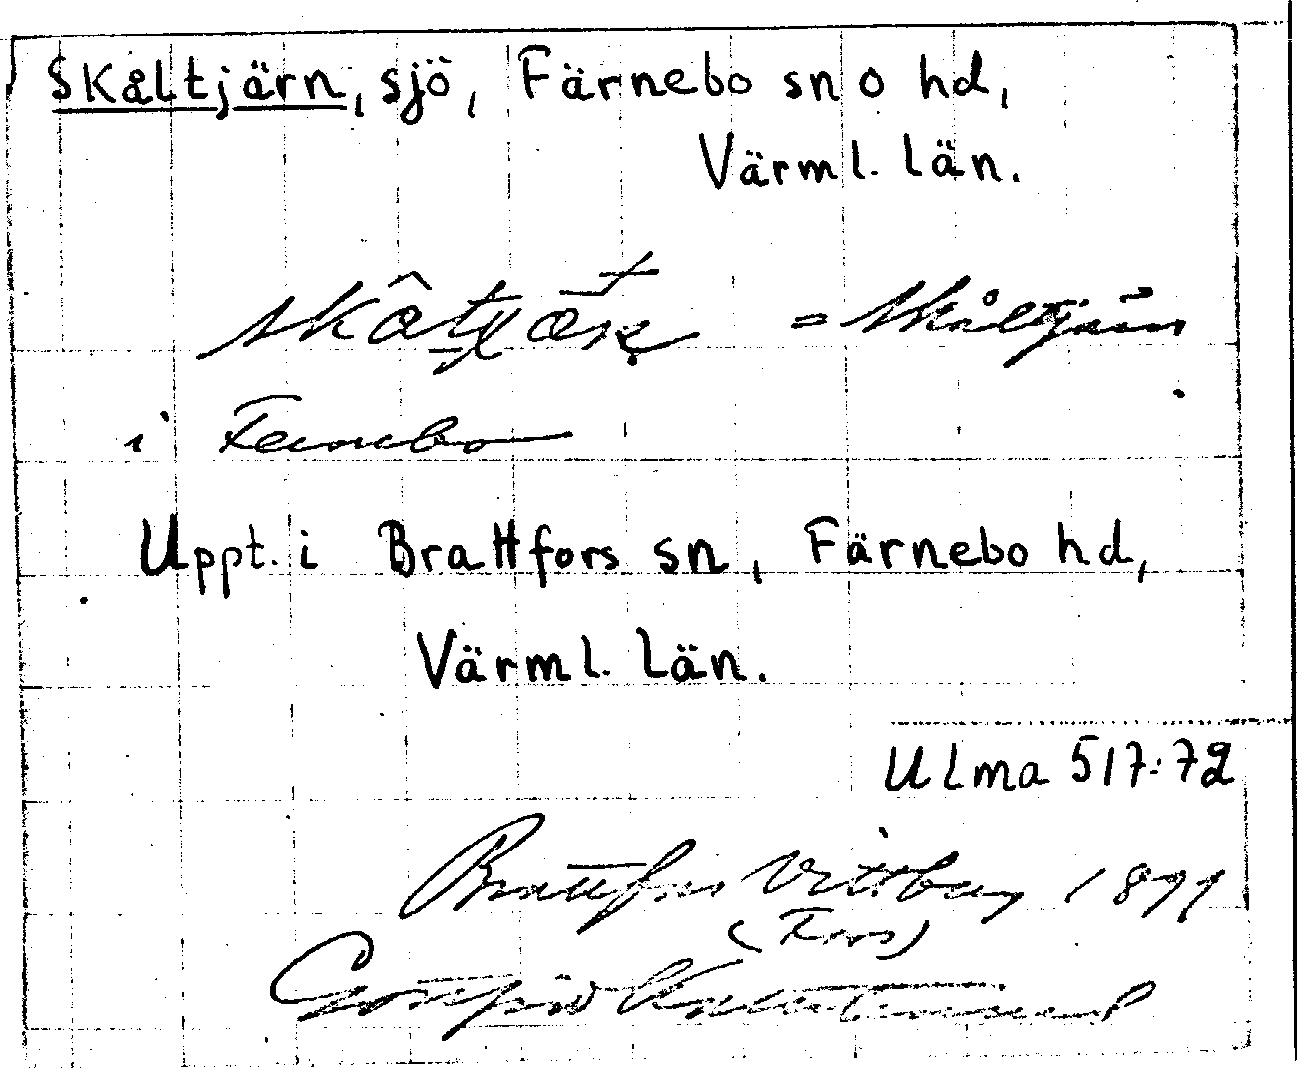 Skåltjärn, sjö, Färnebo sn o hd,
Värml. län.
= Skåltjärn
i Fernebo
Uppt. i Brattfors sn, Färnebo hd,
Värml. län.
Ulma 517:72
Brattfors Vittberg 1899
(Fors)